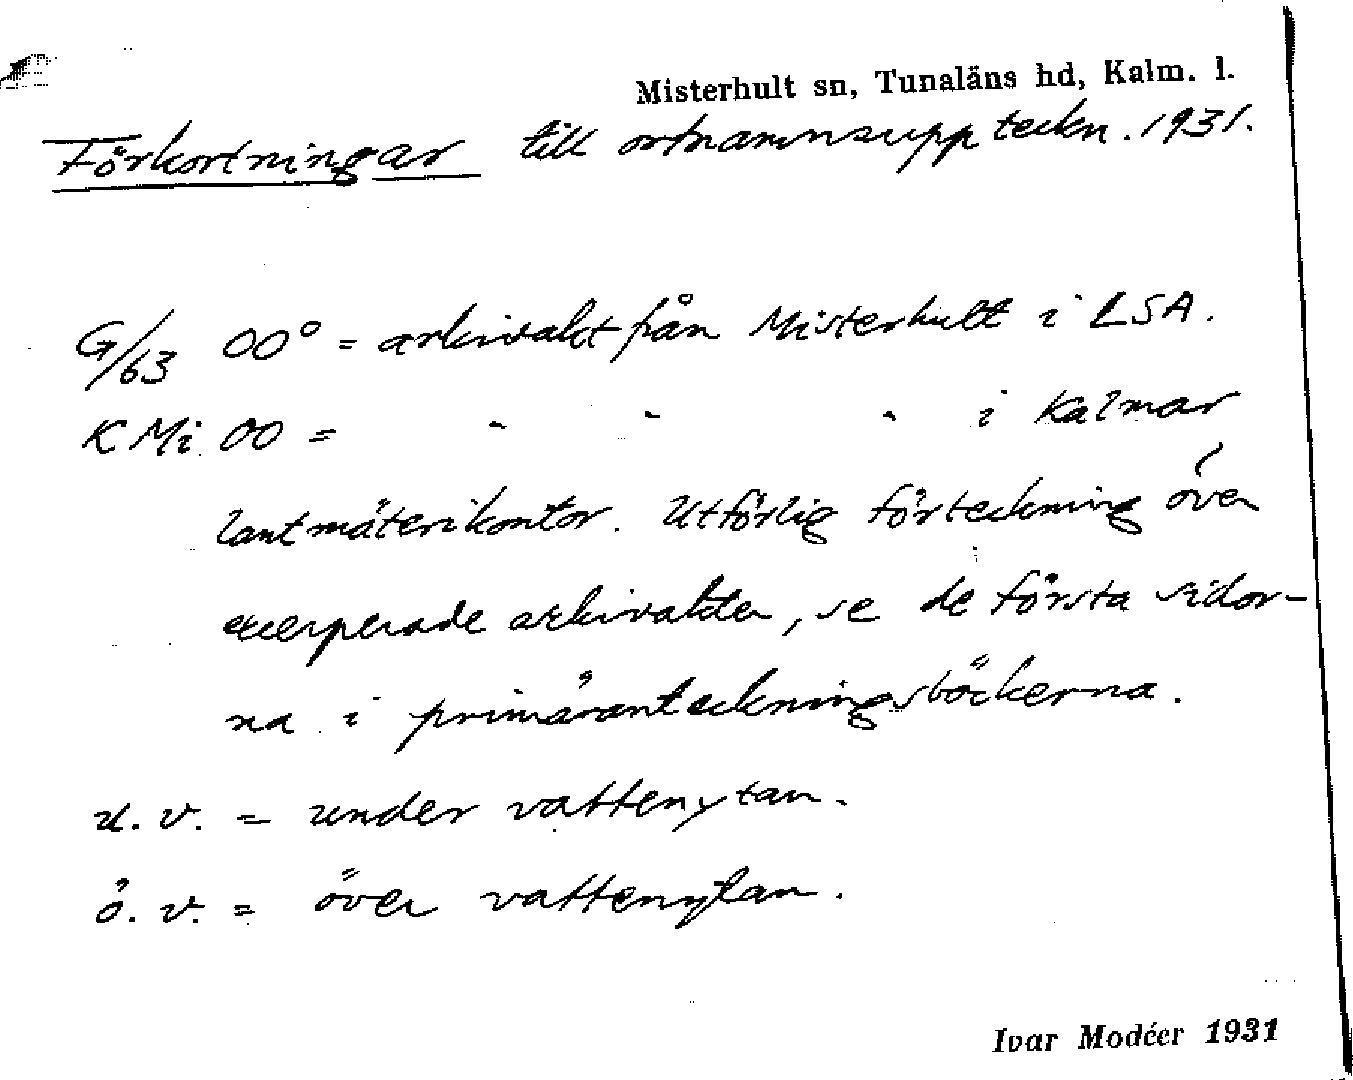 Misterhult sn, Tunaläns hd, Kalm. l.
Förkortningar till ortnamnsuppteckn. 1931.
G/63 00° = arkivakt från Misterhult i LSA.
K Mi 00 = " " " i Kalmar
lantmäterikontor. Utförlig förteckning över
excerperade arkivakter, se de första sidor-
na i primäranteckningsböckerna.
u. v. = under vattenytan.
ö. v. = över vattenytan.
Ivar Modéer 1931